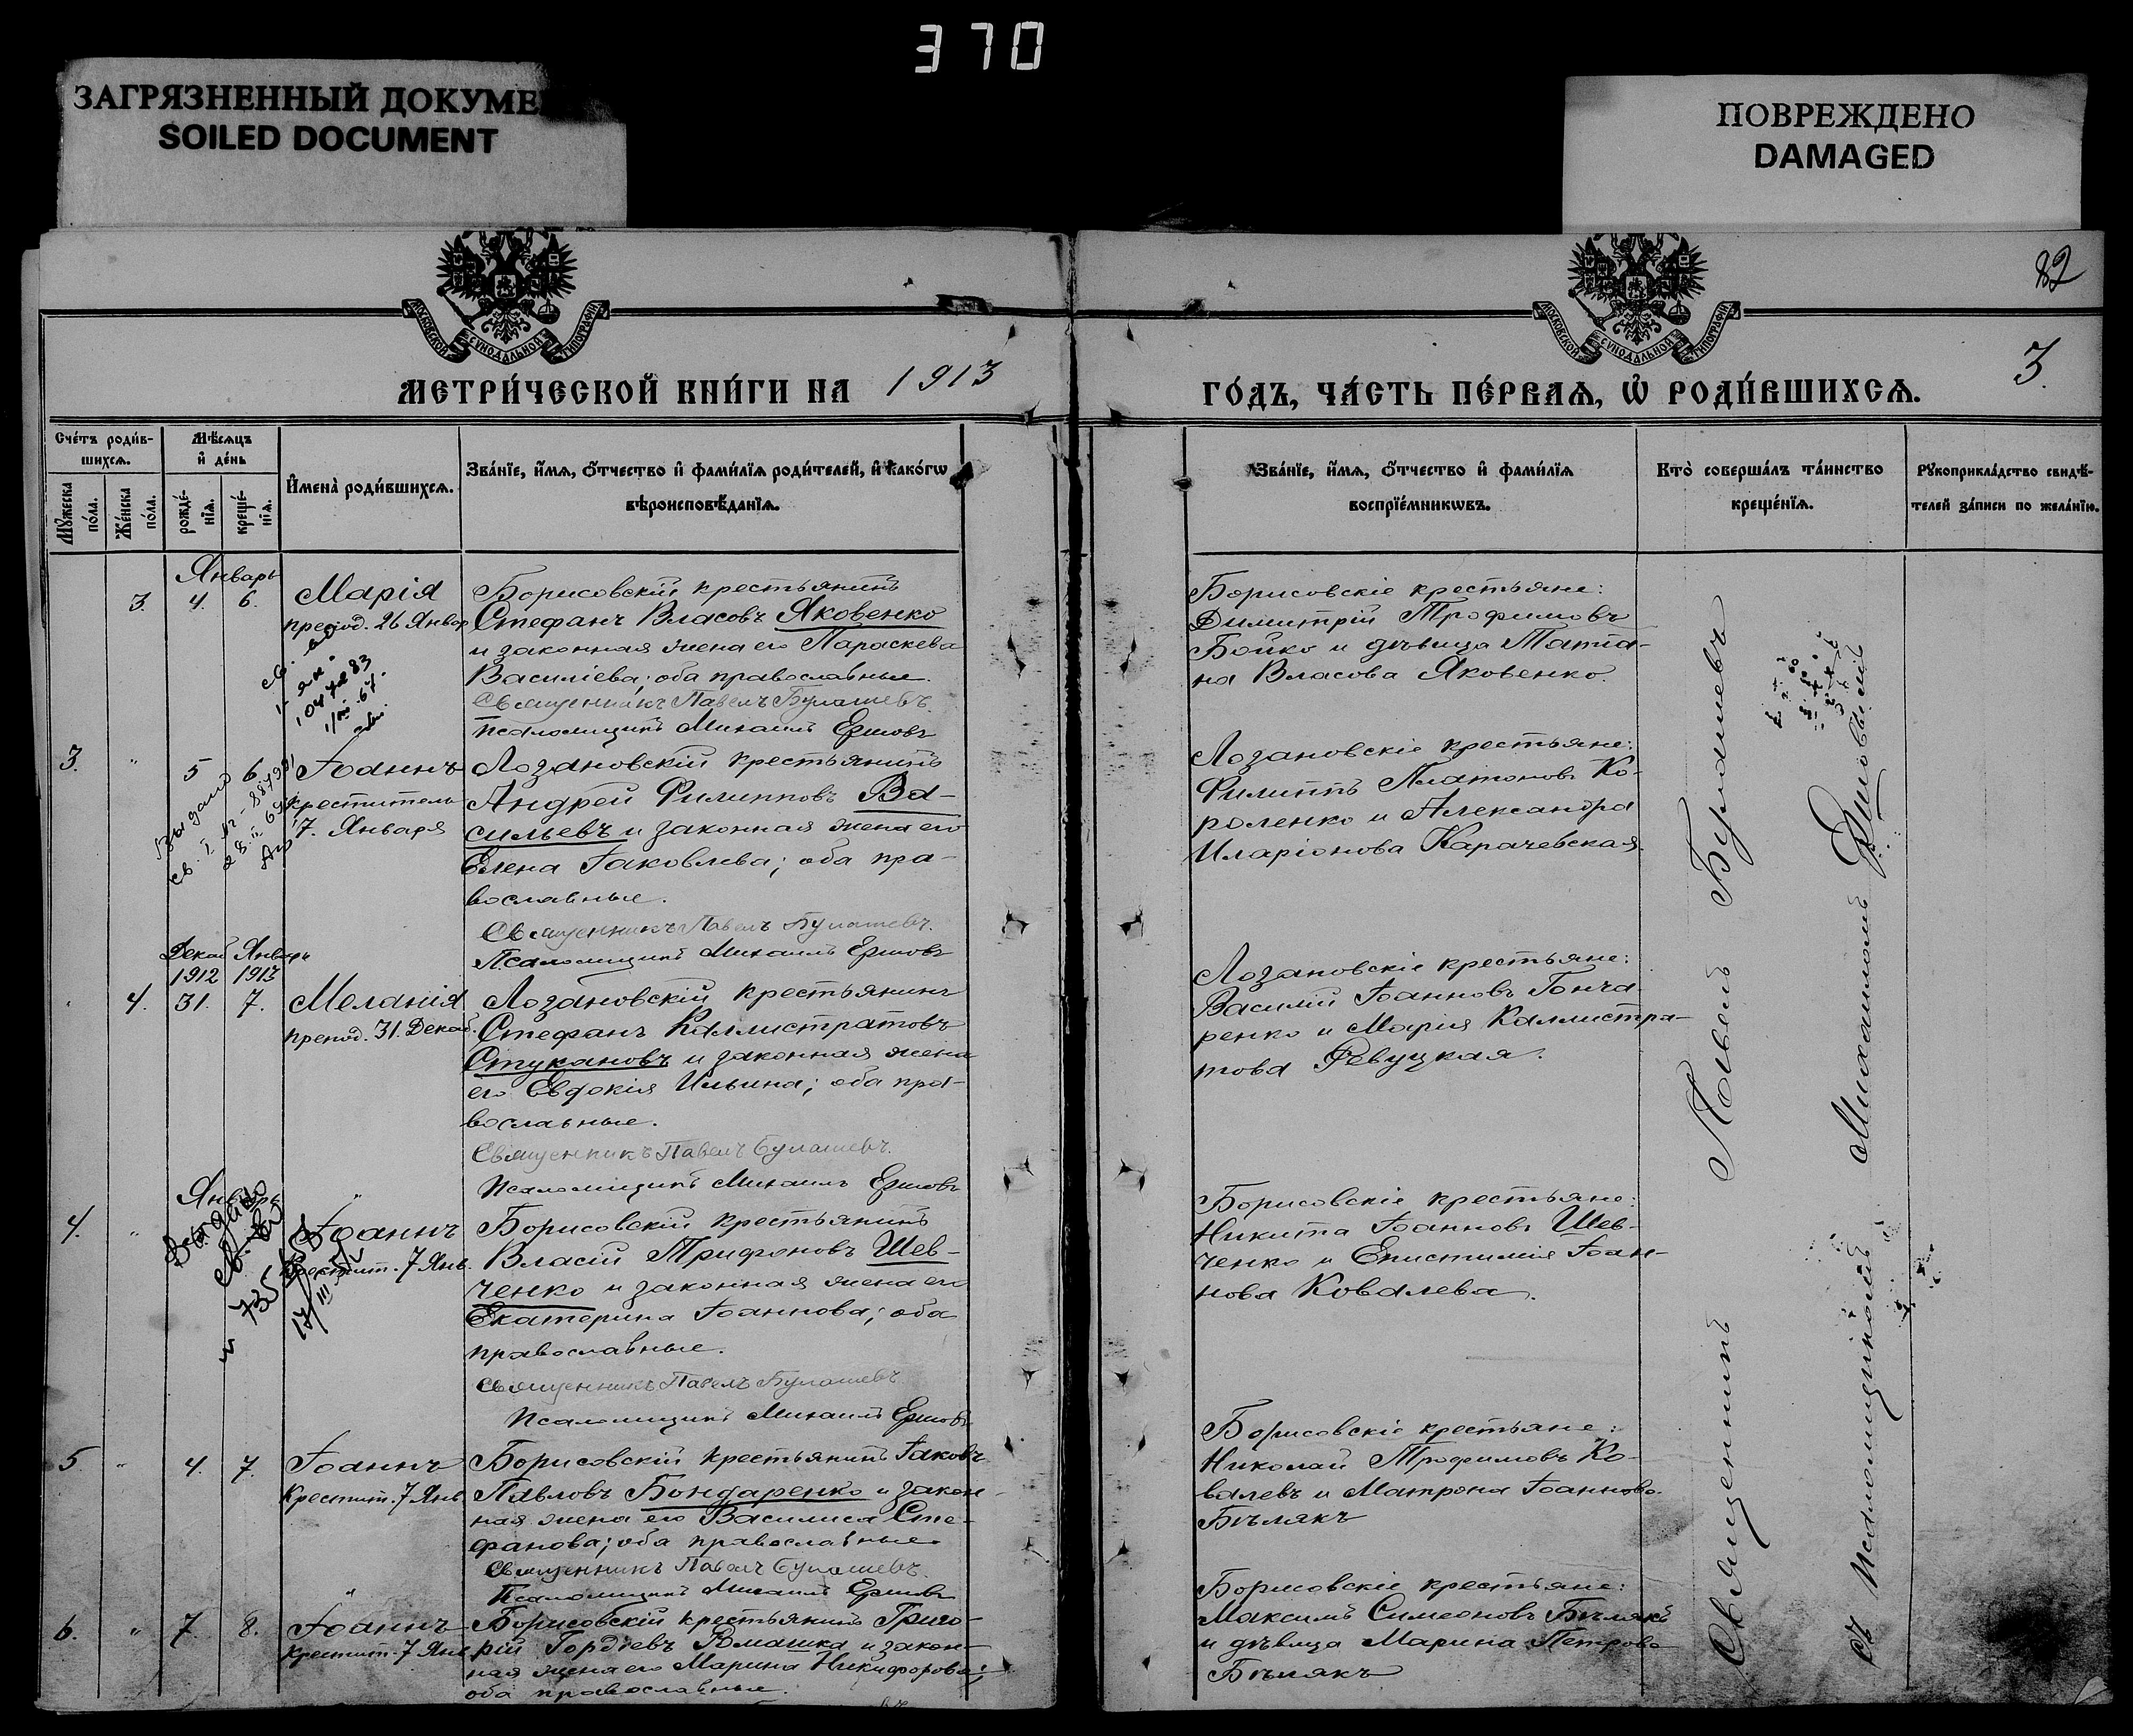 370
ЗАГРЯЗНЕННЫЙ ДОКУМЕ
SOILED DOCUMENT
ПОВРЕЖДЕНО
DAMAGED
82
МОСКОВСКОЙ СѴНОДАЛЬНОЙ ТИПОГРАФІИ
МОСКОВСКОЙ СѴНОДАЛЬНОЙ ТИПОГРАФІИ
МЕТРИ́ЧЕСКОЙ КНИ́ГИ НА 1913
ГО́ДЪ, ЧА́СТЬ ПЕ́РВАѦ, Ѡ҆ РОДИ́ВШИХСѦ.
3.
Сче́тъ роди́в-
шихсѧ.
Мꙋ́жеска по́ла.
Же́нска по́ла.
Мѣ́сѧцъ
и҆ де́нь
рожде́-
нїѧ.
креще́-
нїѧ.
И҆мена̀ роди́вшихсѧ.
Зва́нїе, и҆́мѧ, ѻ҆́тчество и҆ фами́лїѧ роди́телей, и҆ какѡ́гѡ
вѣроисповѣ́данїѧ.
Зва́нїе, и҆́мѧ, ѻ҆́тчество и҆ фами́лїѧ
воспрїе́мникѡвъ.
Кто̀ соверша́лъ та́инство
креще́нїѧ.
Рꙋкоприкла́дство свидѣ́-
телей за́писи по жела́нїю.
Январь
3. 4. 6. Марія
препод. 26 Январ
Борисовскій крестьянинъ
Стефанъ Власовъ Яковенко
и законная жена его Параскева
Василіева; оба православные.
Священникъ Павелъ Булашевъ.
Псаломщикъ Михаилъ Ершовъ
Борисовскіе крестьяне:
Димитрій Трофимовъ
Бойко и дѣвица Татіа-
на Власова Яковенко.
3. " 5 6 Іоаннъ
креститель
7. Января
Выдано
Лозановскій крестьянинъ
Андрей Филипповъ Ва-
сильевъ и законная жена его
Елена Іаковлева; оба пра-
вославные.
Священникъ Павелъ Булашевъ.
Псаломщикъ Михаилъ Ершовъ
Лозановскіе крестьяне:
Филиппъ Платоновъ Ко-
роленко и Александра
Иларіонова Карачевская.
Декаб Январь
1912 1913
" 4. 31. 7. Меланія
препод. 31. Декаб.
Лозановскій крестьянинъ
Стефанъ Каллистратовъ
Стукановъ и законная жена
его Евдокія Ильина; оба пра-
вославные.
Священникъ Павелъ Булашевъ.
Псаломщикъ Михаилъ Ершовъ
Лозановскіе крестьяне:
Василій Іоанновъ Гонча-
ренко и Марія Каллистра-
това Ревуцкая.
Январь
4. " Іоаннъ
крестит. 7 Янв.
Выдано
Борисовскій крестьянинъ
Власій Трифоновъ Шев-
ченко и законная жена его
Екатерина Іоаннова; оба
православные.
Священникъ Павелъ Булашевъ
Псаломщикъ Михаилъ Ершовъ
Борисовскіе крестьяне:
Никита Іоанновъ Шев-
ченко и Епистимія Іоан-
нова Ковалева.
5 " 4. 7. Іоаннъ
Крестит. 7 Янв
Борисовскій крестьянинъ Іаковъ
Павловъ Бондаренко и закон-
ная жена его Василиса Сте-
фанова; оба православные
Священникъ Павелъ Булашевъ.
Псаломщикъ Михаилъ Ершовъ
Борисовскіе крестьяне:
Николай Трофимовъ Ко-
валевъ и Матрона Іоаннова
Бѣлякъ
6. " 7. 8. Іоаннъ
Крестит. 7 Янв
Борисовскій крестьянинъ Григо-
рій Гордѣевъ Ромашка и закон-
ная жена его Марина Никифорова;
оба православные.
Борисовскіе крестьяне:
Максимъ Симеоновъ Бѣлякъ
и дѣвица Марина Петрова
Бѣлякъ
Священникъ Павелъ Булашевъ
съ Псаломщикомъ Михаиломъ Ершовымъ